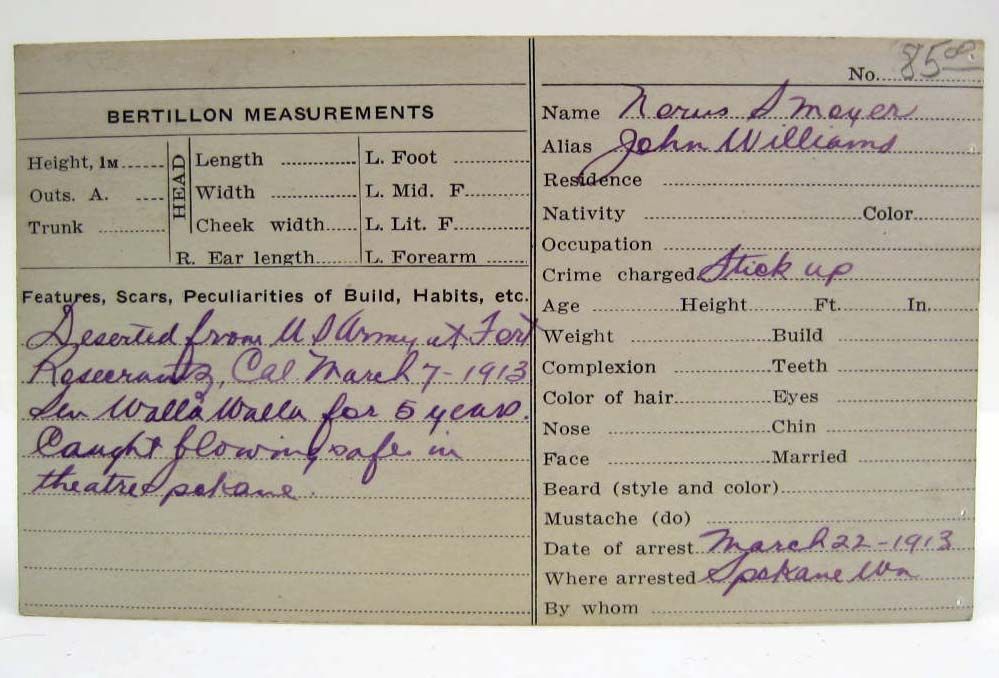 No. 85.00
BERTILLON MEASUREMENTS
Height, 1M
Outs. A.
Trunk
HEAD
Length
Width
Cheek width
R. Ear length
L. Foot
L. Mid. F.
L. Lit. F.
L. Forearm
Features, Scars, Peculiarities of Build, Habits, etc.
Deserted from U S Army at Fort
Rosecrantz, Cal March 7-1913
Sen Walla Walla for 5 years.
Caught blowing safe in
theatre Spokane.
Name Norus S Moyer
Alias John Williams
Residence
Nativity Color
Occupation
Crime charged Stick up
Age Height Ft. In.
Weight Build
Complexion Teeth
Color of hair Eyes
Nose Chin
Face Married
Beard (style and color)
Mustache (do)
Date of arrest March 22-1913
Where arrested Spokane Wn
By whom